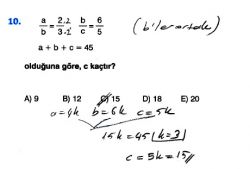 10. a/b = 2.2/3.2 b/c = 6/5 (b'ler ortak)
a + b + c = 45
olduğuna göre, c kaçtır?
A) 9 B) 12 C) 15 D) 18 E) 20
a=4k b=6k c=5k
15k=45 k=3
c=5k=15//